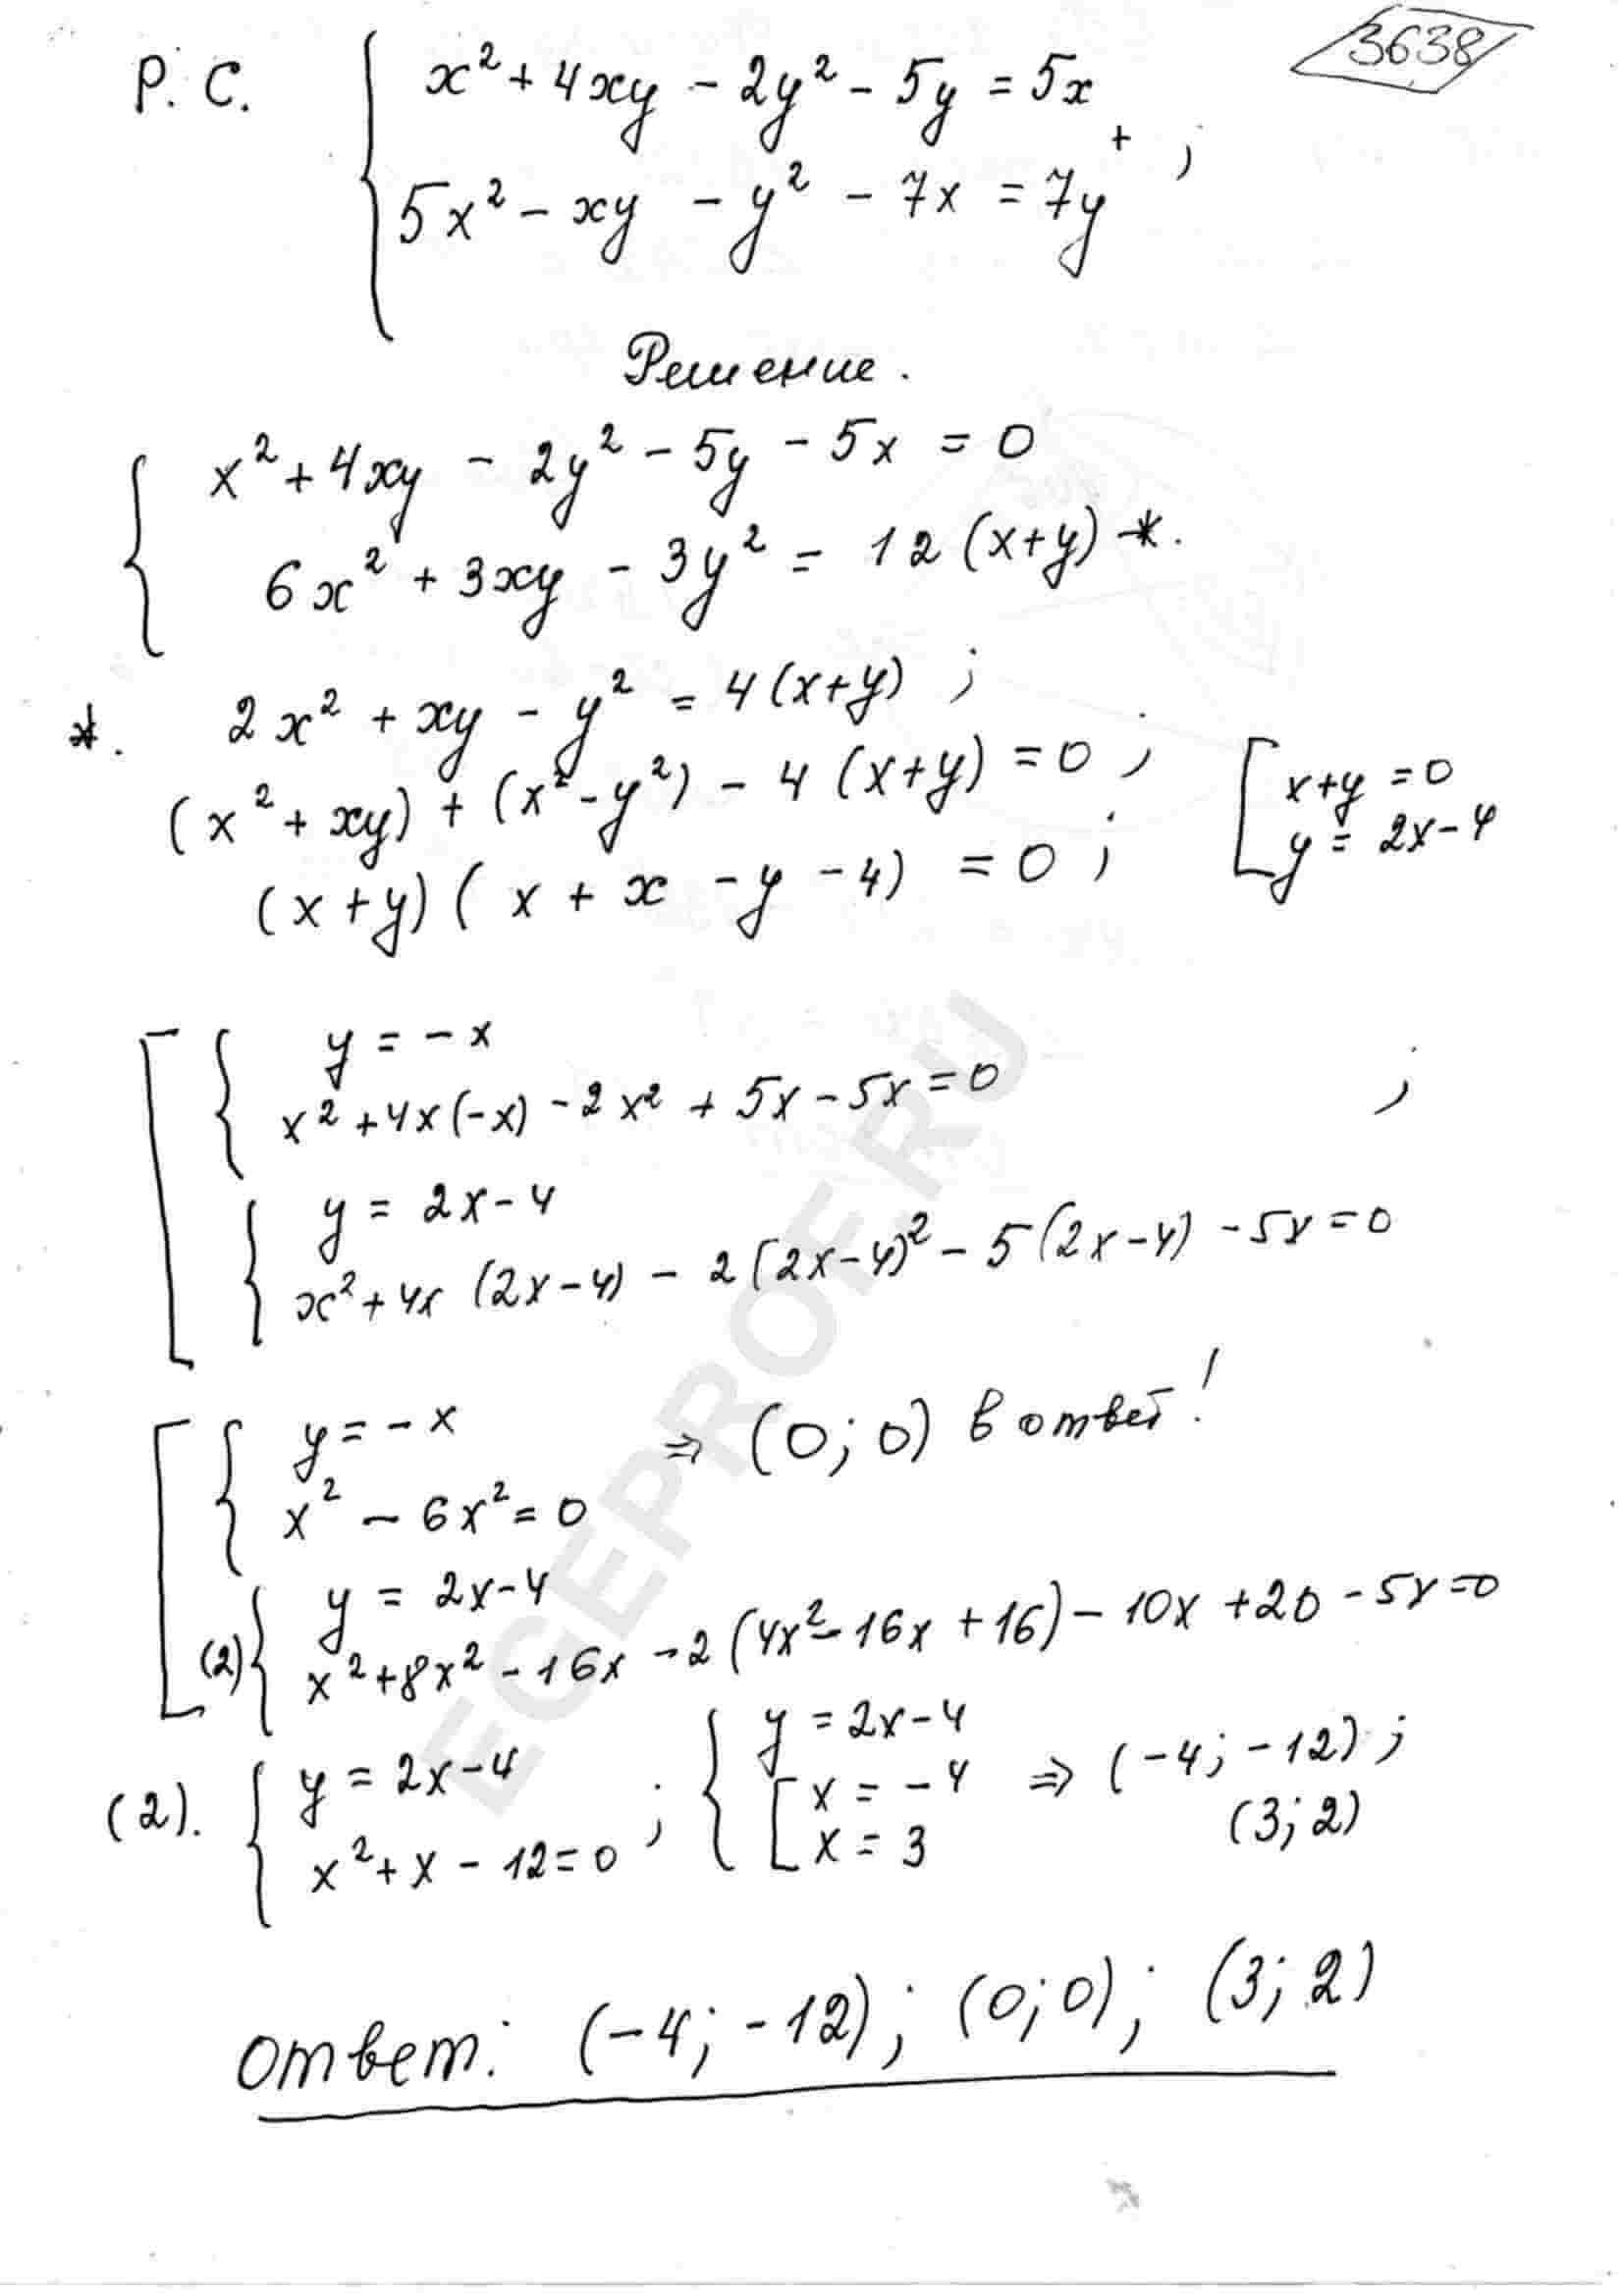 3638
Р. С. { x² + 4xy - 2y² - 5y = 5x
+ ;
5x² - xy - y² - 7x = 7y
Решение.
{ x² + 4xy - 2y² - 5y - 5x = 0
6x² + 3xy - 3y² = 12(x+y) *.
*. 2x² + xy - y² = 4(x+y) ;
(x² + xy) + (x² - y²) - 4(x+y) = 0 ; [ x+y = 0
(x+y)(x + x - y - 4) = 0 ; y = 2x-4
[ { y = -x
x² + 4x(-x) - 2x² + 5x - 5x = 0 ;
{ y = 2x-4
x² + 4x(2x-4) - 2(2x-4)² - 5(2x-4) - 5x = 0
[ { y = -x ⇒ (0; 0) в ответ!
x² - 6x² = 0
(2) { y = 2x-4
x² + 8x² - 16x - 2(4x² - 16x + 16) - 10x + 20 - 5x = 0
(2). { y = 2x-4 ; { y = 2x-4
x² + x - 12 = 0 [ x = -4 ⇒ (-4; -12) ;
x = 3 (3; 2)
Ответ: (-4; -12); (0; 0); (3; 2)
EGEPROF.RU